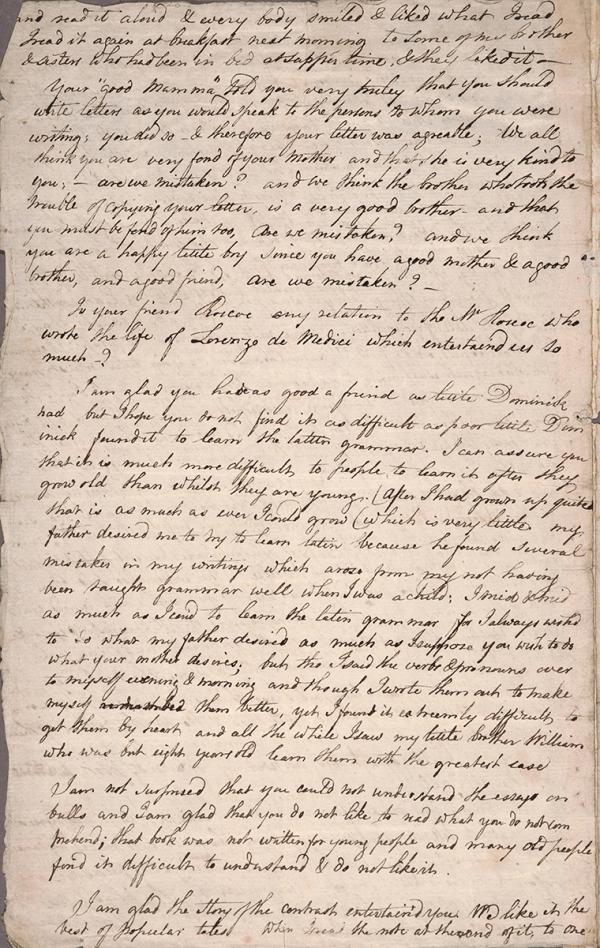 and read it aloud & every body smiled & liked what I read
I read it again at breakfast next morning to some of my brother
& sisters who had been in bed at supper time, & they liked it —
Your "good Mamma" told you very truley that you should
write letters as you would speak to the persons to whom you were
writing; you did so — & therefore your letter was agreable; We all
think you are very fond of your Mother and that she is very kind to
you; — are we mistaken? and we think the brother who took the
trouble of copying your letter, is a very good brother — and that
you must be fond of him too, Are we mistaken? and we think
you are a happy little boy since you have a good mother & a good
brother, and a good friend, are we mistaken? —
Is your friend Roscoe any relation to the Mr Roscoe who
wrote the life of Lorenzo de Medici which entertaind us so
much —?
I am glad you have as good a friend as little Dominick
had but I hope you do not find it as difficult as poor little Dom
inick found it to learn the latin grammar. I can assure you
that it is much more difficult to people to learn it after they
grow old than whilst they are young. (After I had grown up quite
that is as much as ever I could grow (which is very little) my
father desired me to try to learn latin because he found several
mistakes in my writings which arose from my not having
been taught grammar well when I was a child; I tried & tried
as much as I coud to learn the latin grammar for I always wishd
to do what my father desired as much as I suppose you wish to do
what your mother desires; but tho I said the verbs & pronouns over
to myself evening & morning and though I wrote them out to make
myself them better, yet I found it extreemly difficult to
get them by heart and all the while I saw my little brother William
who was but eight years old learn them with the greatest ease
I am not surprised that you could not understand the essay on
bulls and I am glad that you do not like to read what you do not com
prehend; that book was not written for young people and many old people
find it difficult to understand & do not like it.
I am glad the story of the contrast entertain'd you. We like it the
best of Popular tales when the note at the end of it, to one